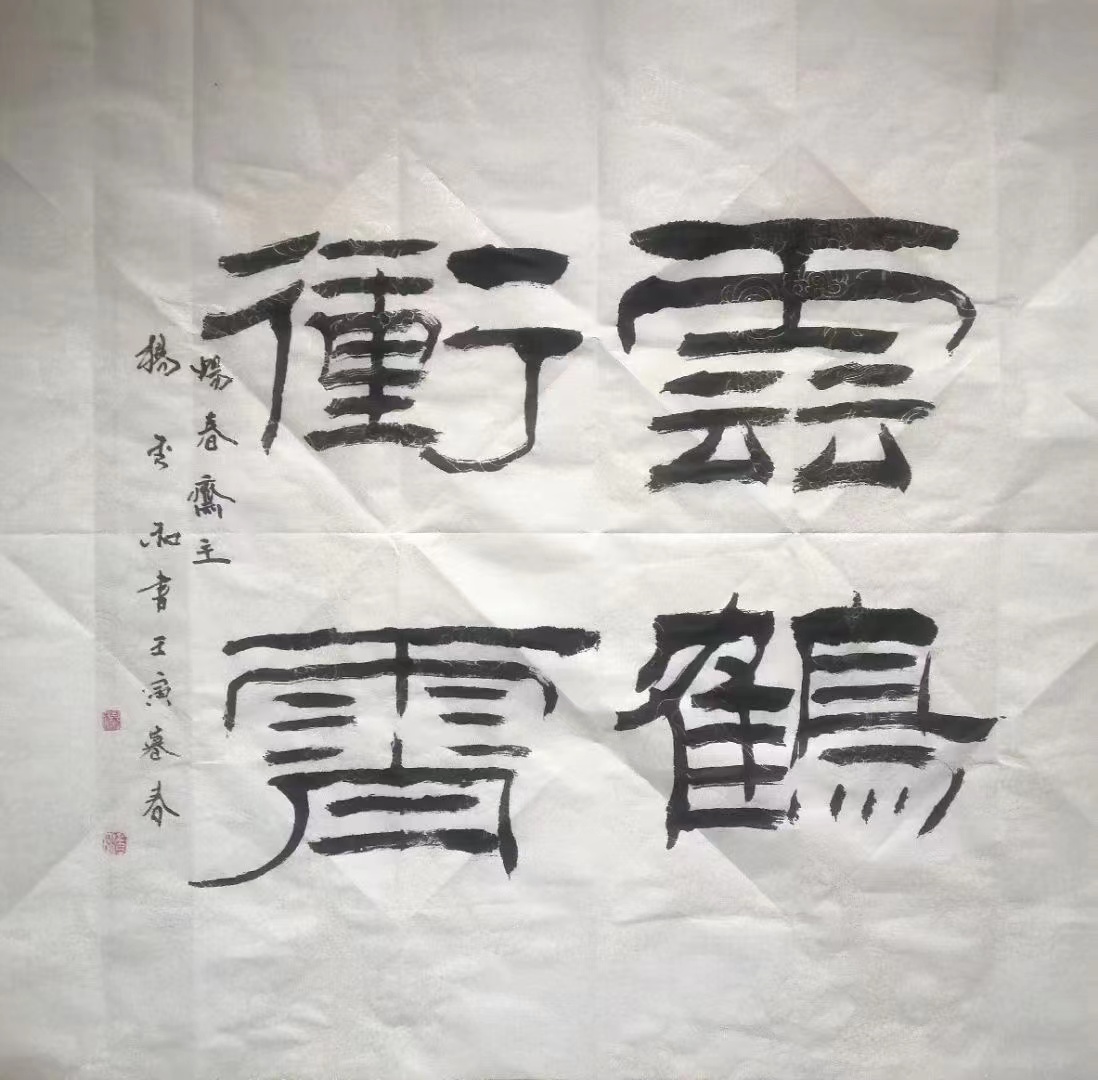 雲鶴
衝霄
暢春齋主
楊書壬寅暮春